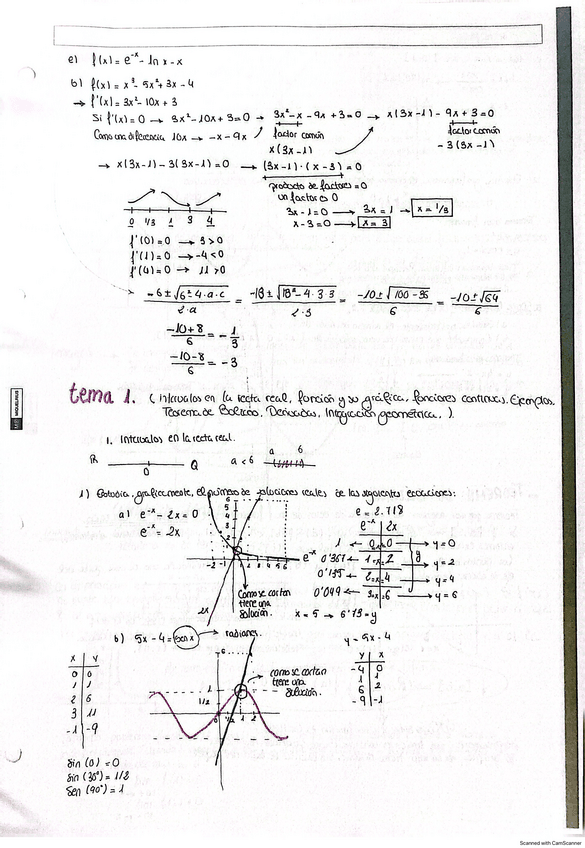 e) f(x) = e^-x - ln x - x
b) f(x) = x³ - 5x² + 3x - 4
→ f'(x) = 3x² - 10x + 3
Si f'(x) = 0 → 3x² - 10x + 3 = 0 → 3x² - x - 9x + 3 = 0 → x(3x-1) - 9x + 3 = 0
Como una diferencia 10x → -x - 9x factor común factor común
x(3x-1) - 3(3x-1)
→ x(3x-1) - 3(3x-1) = 0 → (3x-1)·(x-3) = 0
producto de factores = 0
un factor es 0
3x-1 = 0 → 3x = 1 → x = 1/3
x-3 = 0 → x = 3
0 1/3 1 3 4
f'(0) = 0 → 3 > 0
f'(1) = 0 → -4 < 0
f'(4) = 0 → 11 > 0
-6 ± √6² - 4·a·c / 2·a = -10 ± √10² - 4·3·3 / 2·3 = -10 ± √100 - 36 / 6 = -10 ± √64 / 6
-10+8 / 6 = -1/3
-10-8 / 6 = -3
MIQUELRIUS
tema 1. (Intervalos en la recta real, función y su gráfica, funciones continuas. Ejemplos.
Teorema de Bolzano, Derivadas, Integración geométrica, ).
1. Intervalos en la recta real.
R 0 Q a < b a b
1) Estudia, graficamente, el número de soluciones reales de las siguientes ecuaciones:
a) e^-x - 2x = 0
e^-x = 2x
e = 2.718
e^-x 2x
1 ← 0 = 0 → y = 0
0'367 ← 1 = 2 → y = 2
0'135 ← 2 = 4 → y = 4
0'049 ← 3 = 6 → y = 6
x = 5 → 6'73 = y
6
5
4
3
2
-2 -1 1 2 3 4 5 6
e^-x
2x
Como se cortan
tiene una
solución.
b) 5x - 4 = sen x → radianes.
y = 5x - 4
x y
0 0
1 1
2 6
3 11
-1 -9
6
1
1/2
0 1/2 1 2
como se cortan
tiene una
solución.
y x
-4 0
1 1
6 2
-9 -1
Sin (0) = 0
Sin (30°) = 1/2
Sen (90°) = 1
Scanned with CamScanner